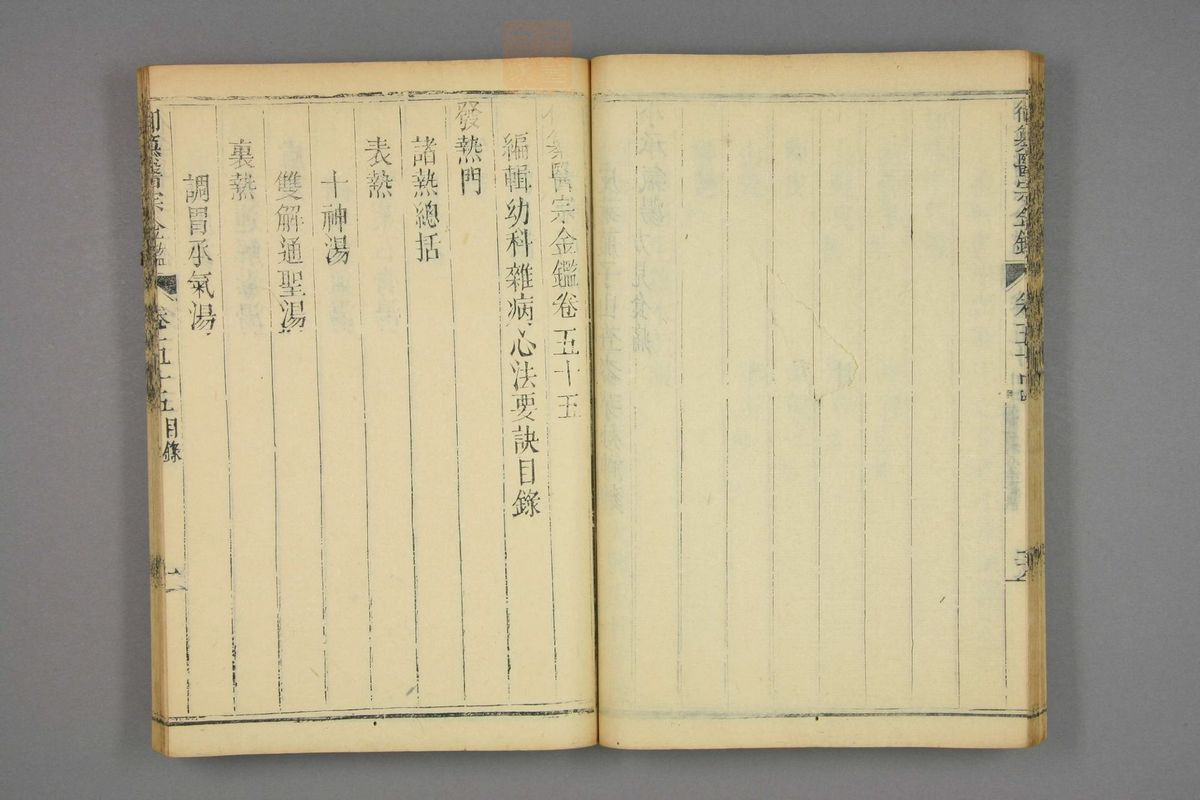 御纂醫宗金鑑 卷五十四
御纂醫宗金鑑卷五十五
編輯幼科雜病心法要訣目錄
發熱門
諸熱總括
表熱
十神湯
雙解通聖湯
裏熱
調胃承氣湯
御纂醫宗金鑑 卷五十五目錄 一